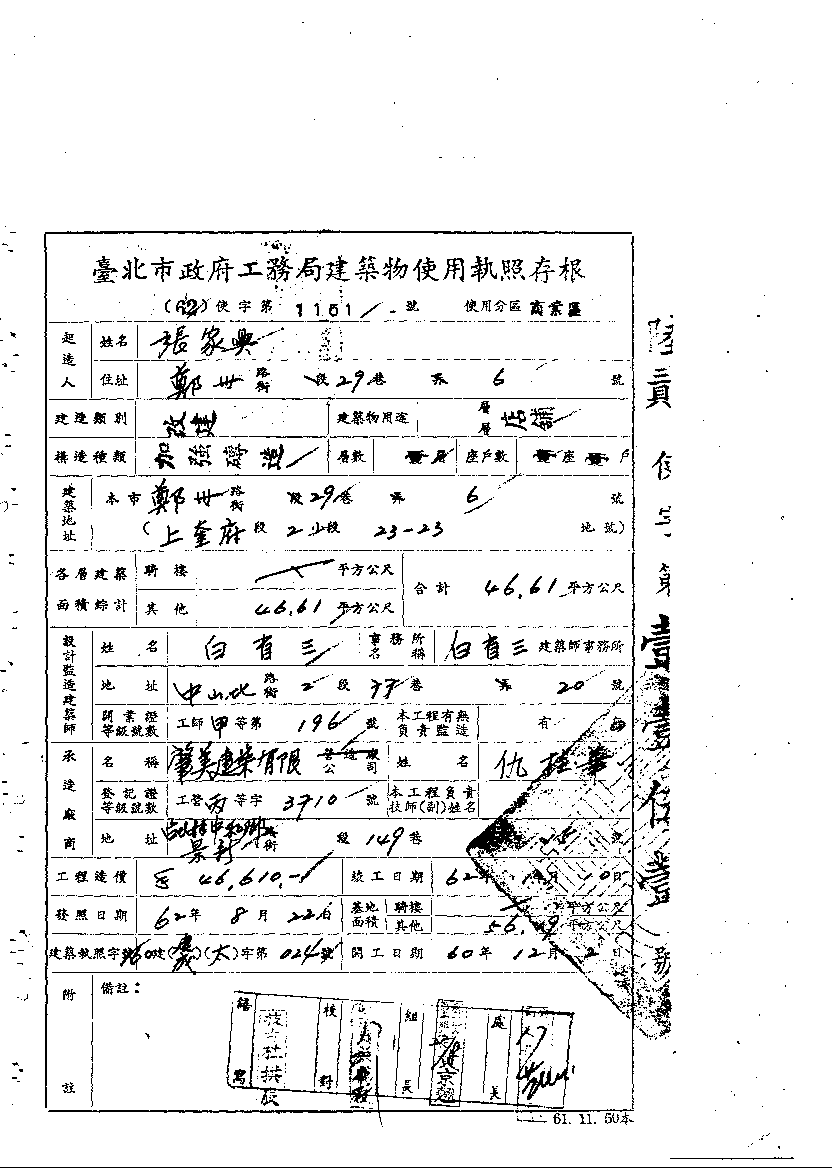 臺北市政府工務局建築物使用執照存根
(62)使字第 1151 號 使用分區 商業區
起造人 姓名 張家興
住址 鄭州 路街 段 29 巷 弄 6 號
建造類別 改建 建築物用途 層層 店舖
構造種類 加強磚造 層數 壹層 座戶數 壹座壹戶
建築地址 本市 鄭州 路街 段 29 巷 弄 6 號
(上奎府段 2 小段 23-23 地號)
各層建築面積綜計 騎樓 平方公尺 合計 46.61 平方公尺
其他 46.61 平方公尺
設計監造建築師 姓名 白有三 事務所名稱 白有三 建築師事務所
地址 中山北 路街 2 段 77 巷 弄 20 號
開業證等級號數 工師甲等第 196 號 本工程有無負責監造 有
承造廠商 名稱 肇美建築有限 營造廠公司 姓名 仇桂華
登記證等級號數 工營丙等字 3710 號 本工程負責技師(副)姓名
地址 路街 段 149 巷 號
工程造價 46,610.- 竣工日期 62年 月 10日
發照日期 62年 8月 22日 基地面積 騎樓 平方公尺
其他 56.49 平方公尺
建築執照字號 60建( )(大)字第 024 號 開工日期 60年 12月 2日
附註 備註:
繕寫 校對 組長 處長
61. 11. 50本
陸貳 使字第壹壹伍壹號